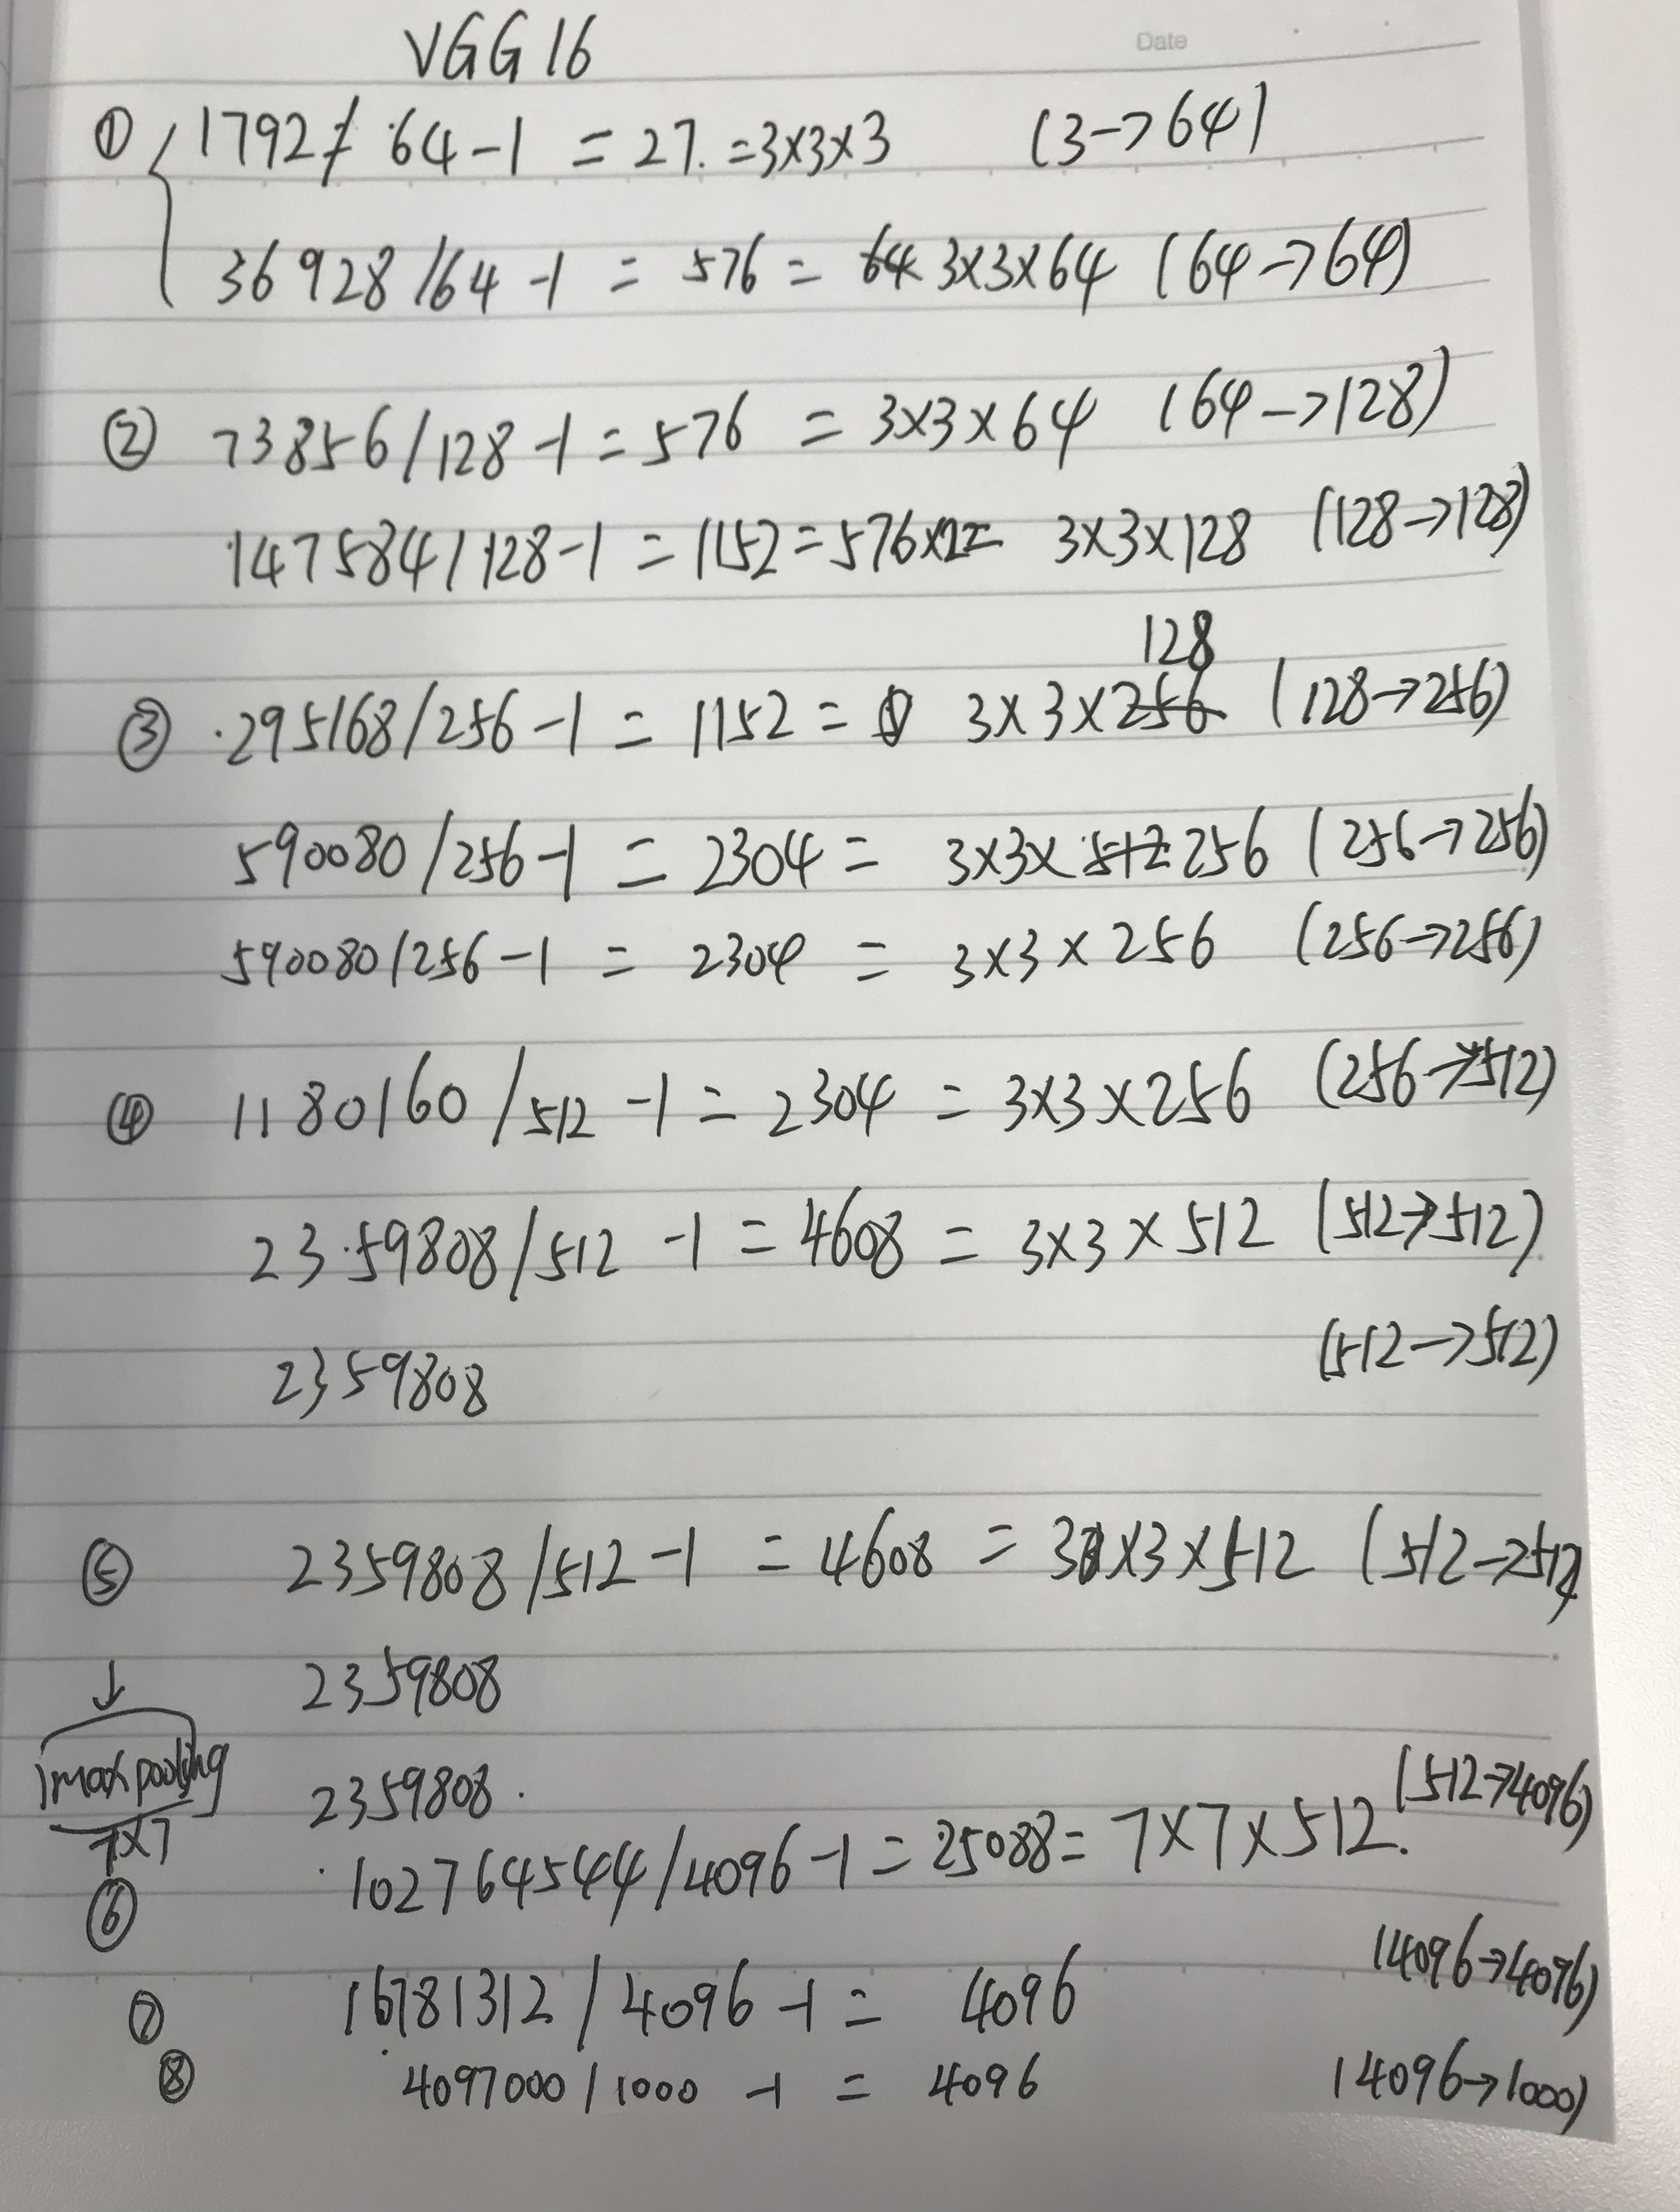 Date
VGG16
① 1792/ 64-1 = 27. =3×3×3 (3→64)
36928/64-1 = 576 = 64 3×3×64 (64→64)
② 73856/128-1=576 = 3×3×64 (64→128)
147584/128-1=1152=576×2= 3×3×128 (128→128)
128
③ 295168/256-1 = 1152 = 3×3×256 (128→256)
590080/256-1 = 2304 = 3×3×512 256 (256→256)
590080/256-1 = 2304 = 3×3×256 (256→256)
④ 1180160/512-1 = 2304 = 3×3×256 (256→512)
2359808/512-1 = 4608 = 3×3×512 (512→512)
2359808 (512→512)
⑤ 2359808/512-1 = 4608 = 3×3×512 (512→512
↓ 2359808
max pooling
7×7
2359808.
⑥ 102764544/4096-1=25088=7×7×512. (512→4096)
⑦ 16781312/4096-1= 4096 (4096→4096)
⑧ 4097000/1000-1 = 4096 (4096→1000)